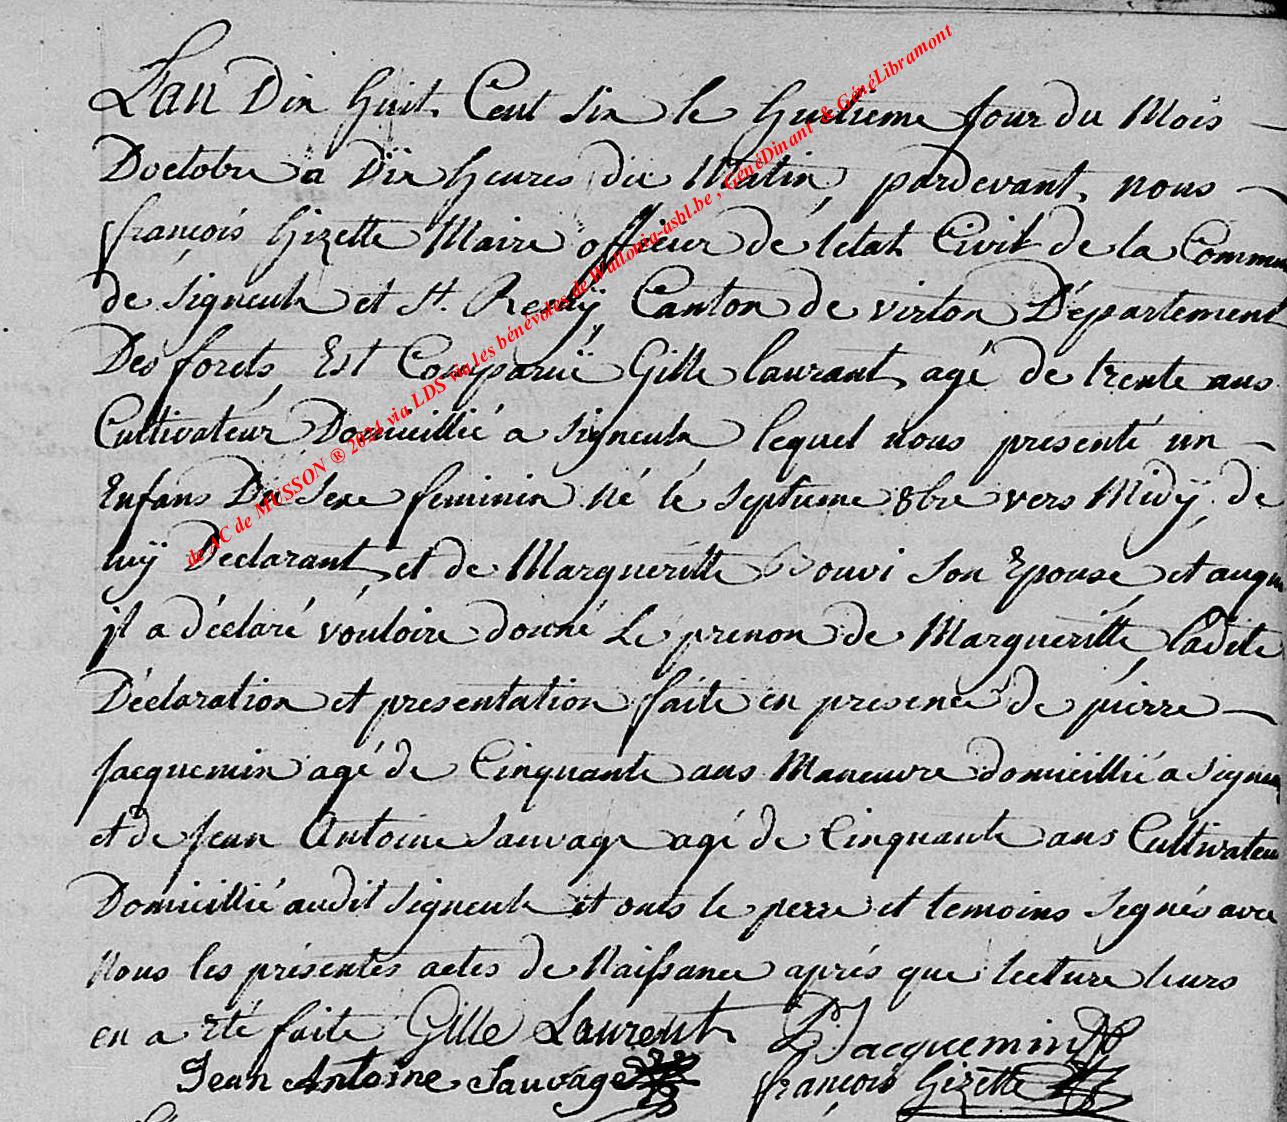 L'an Dix Huit Cent Six le Huitieme Jour du Mois
Doctobre a Dix heures du Matin pardevant nous
françois Gizette Maire officier dé letat Civil de la Commu
de Signeulx et St. Remÿ Canton de virton Département
Des forets Est Comparuë Gille laurant agé de trente ans
Cultivateur Domicillié a Signeulx lequel nous presenté un
Enfans Du Sexe feminin né le septieme 8bre vers Midÿ de
luÿ Declarant et de Margueritte Bouvi Son Epouse et auqu
jl a déclaré vouloire donné Le prenon de Margueritte Ladite
Déclaration et presentation faite en presence de pierre
Jacquemin agé de Cinquante ans Maneuvre domicillié a Signeu
et de Jean Antoine Sauvage agé de Cinquante ans Cultivateu
Domicillié audit Signeulx et onts le perre et temoins Segnés avec
Nous les présentes actes de Naissance aprés que lecture leurs
en a été faite Gille Laurent P. Jacquemin
Jean Antoine Sauvage françois Gizette
de AC de MUSSON ® 2024 via LDS via les bénévoles de Wallonia-asbl.be , GénéDinant & GénéLibramont